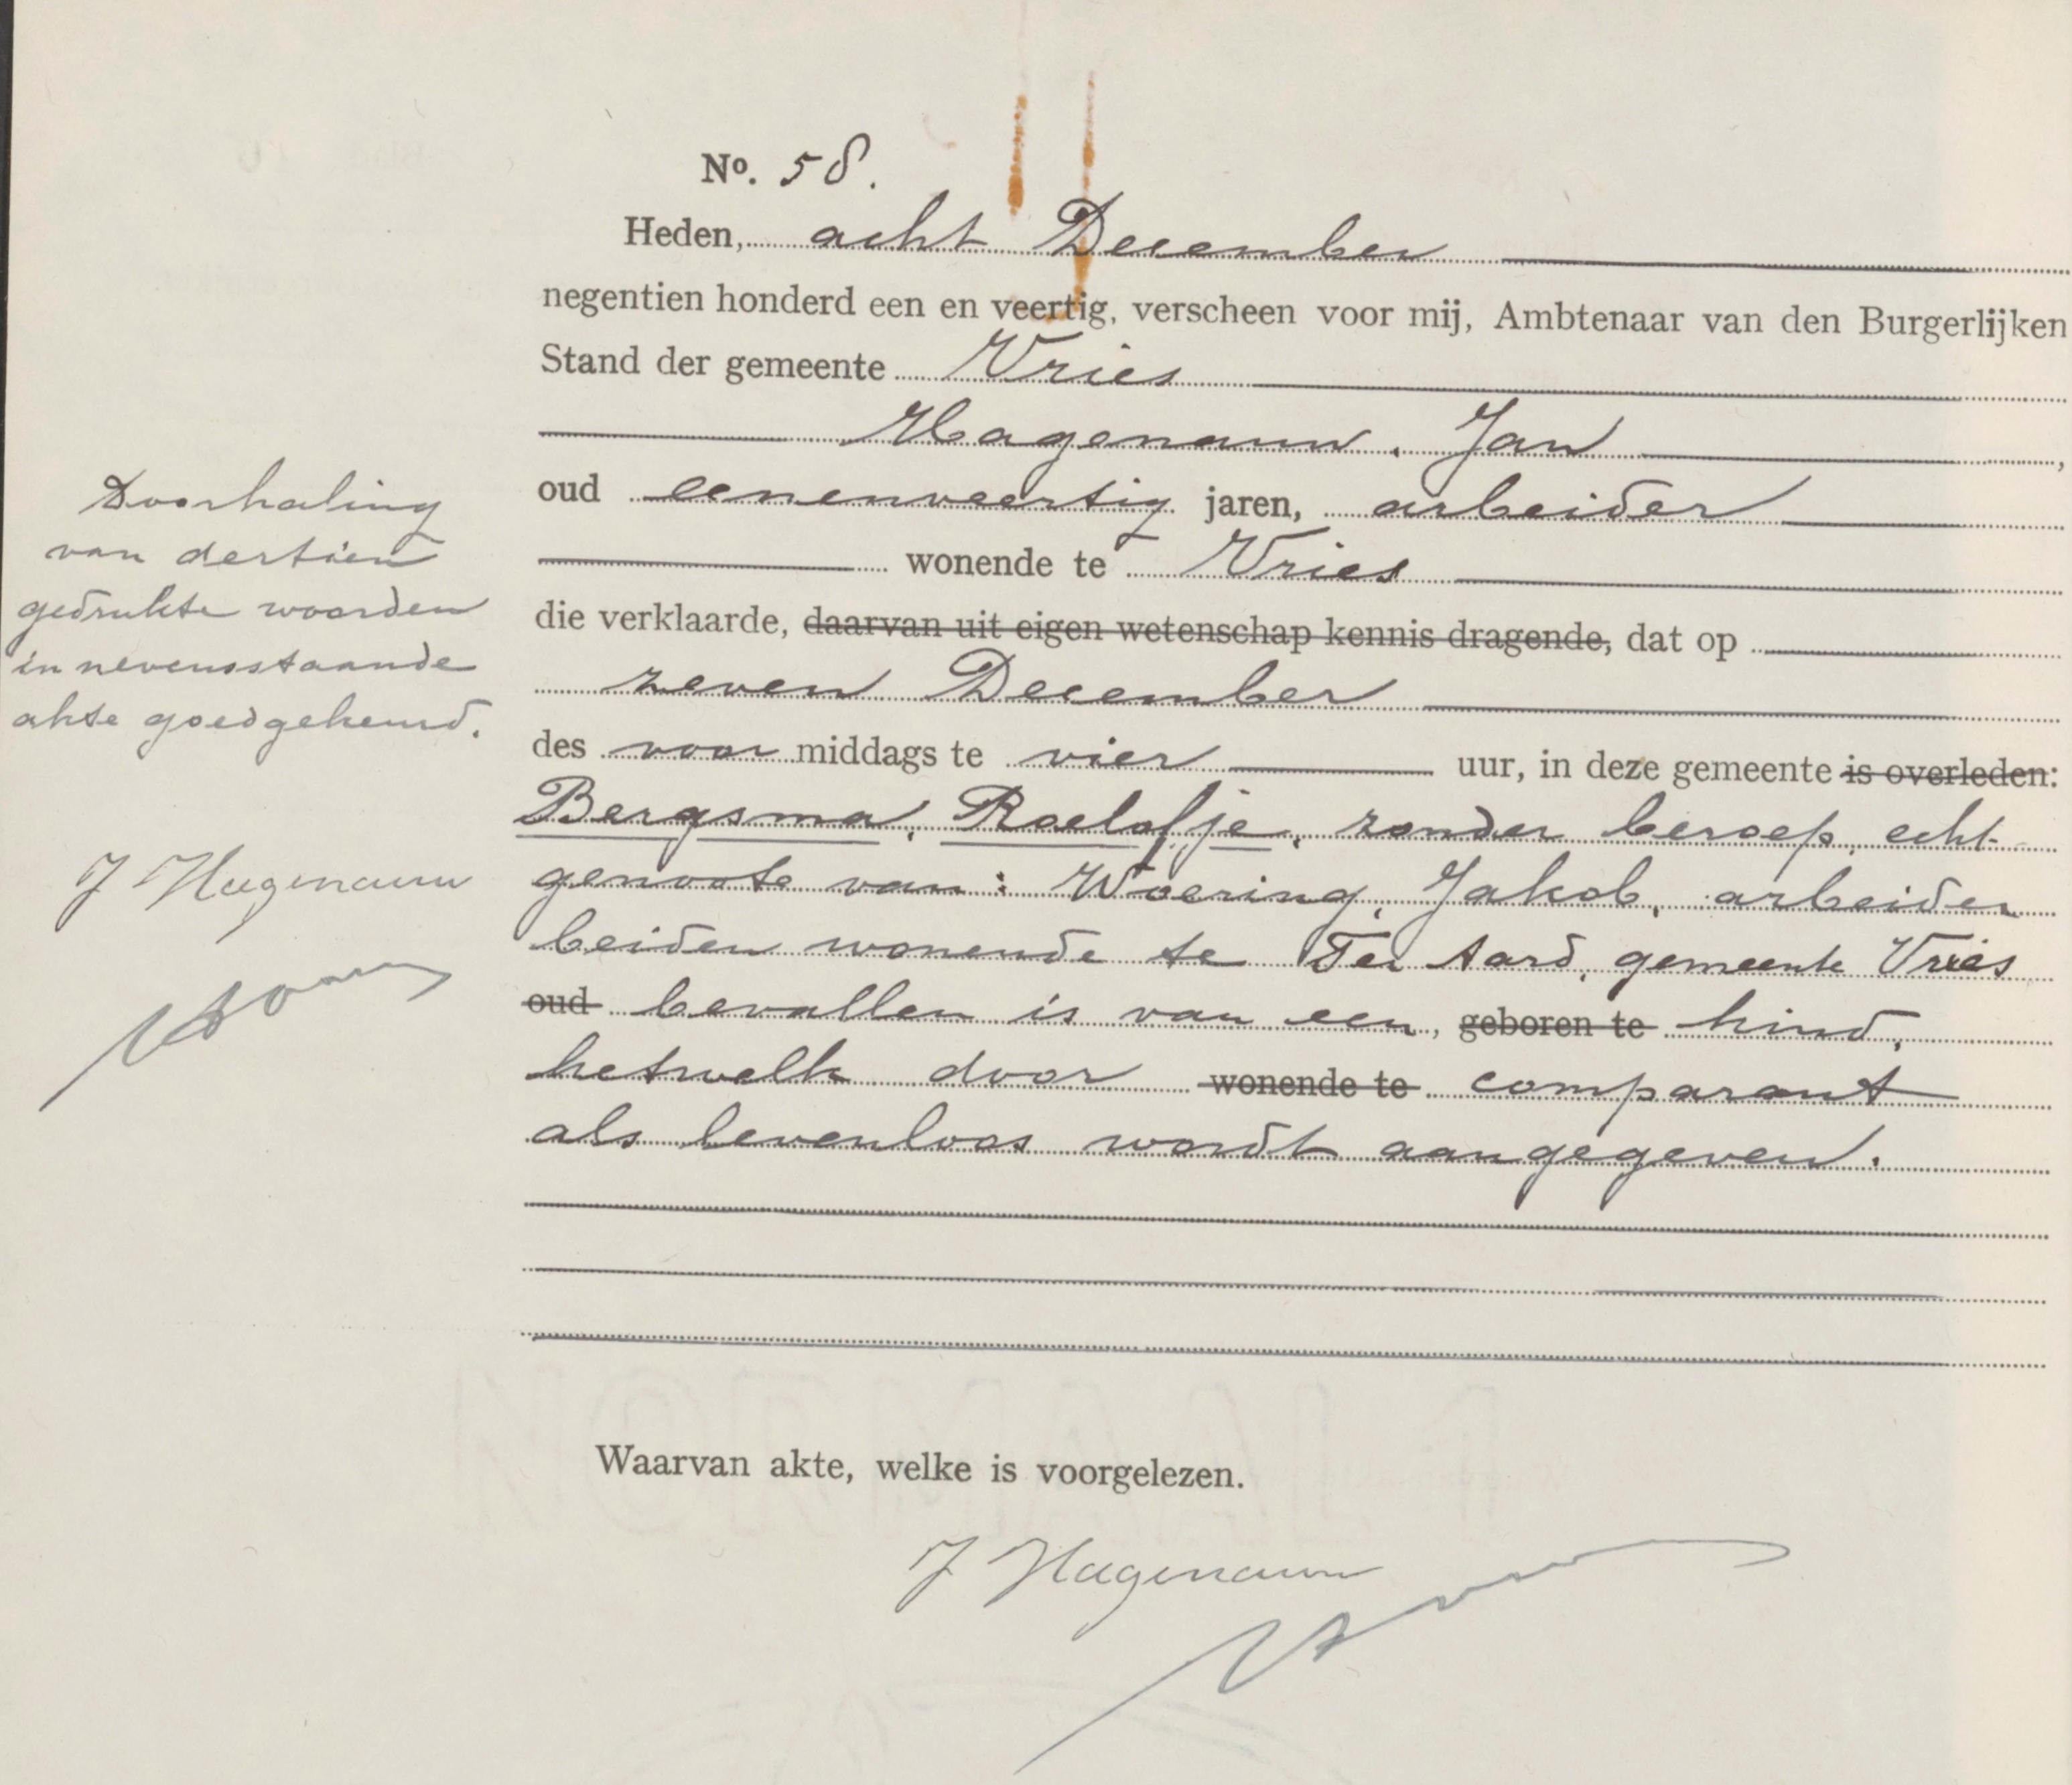 No. 58.
Heden, acht December
negentien honderd een en veertig, verscheen voor mij, Ambtenaar van den Burgerlijken
Stand der gemeente Vries
Hagenauw, Jan ,
oud eenenveertig jaren, arbeider
wonende te Vries
die verklaarde, daarvan uit eigen wetenschap kennis dragende, dat op
zeven December
des voor middags te vier uur, in deze gemeente is overleden:
Bergsma, Roelofje, zonder beroep, echt-
genoote van: Woering, Jakob, arbeider
beiden wonende te Ter Aard, gemeente Vries
oud bevallen is van een, geboren te kind,
hetwelk door wonende te comparant
als levenloos wordt aangegeven.
Waarvan akte, welke is voorgelezen.
J Hagenauw
Doorhaling
van dertien
gedrukte woorden
in nevensstaande
akte goedgekeurd.
J Hagenauw